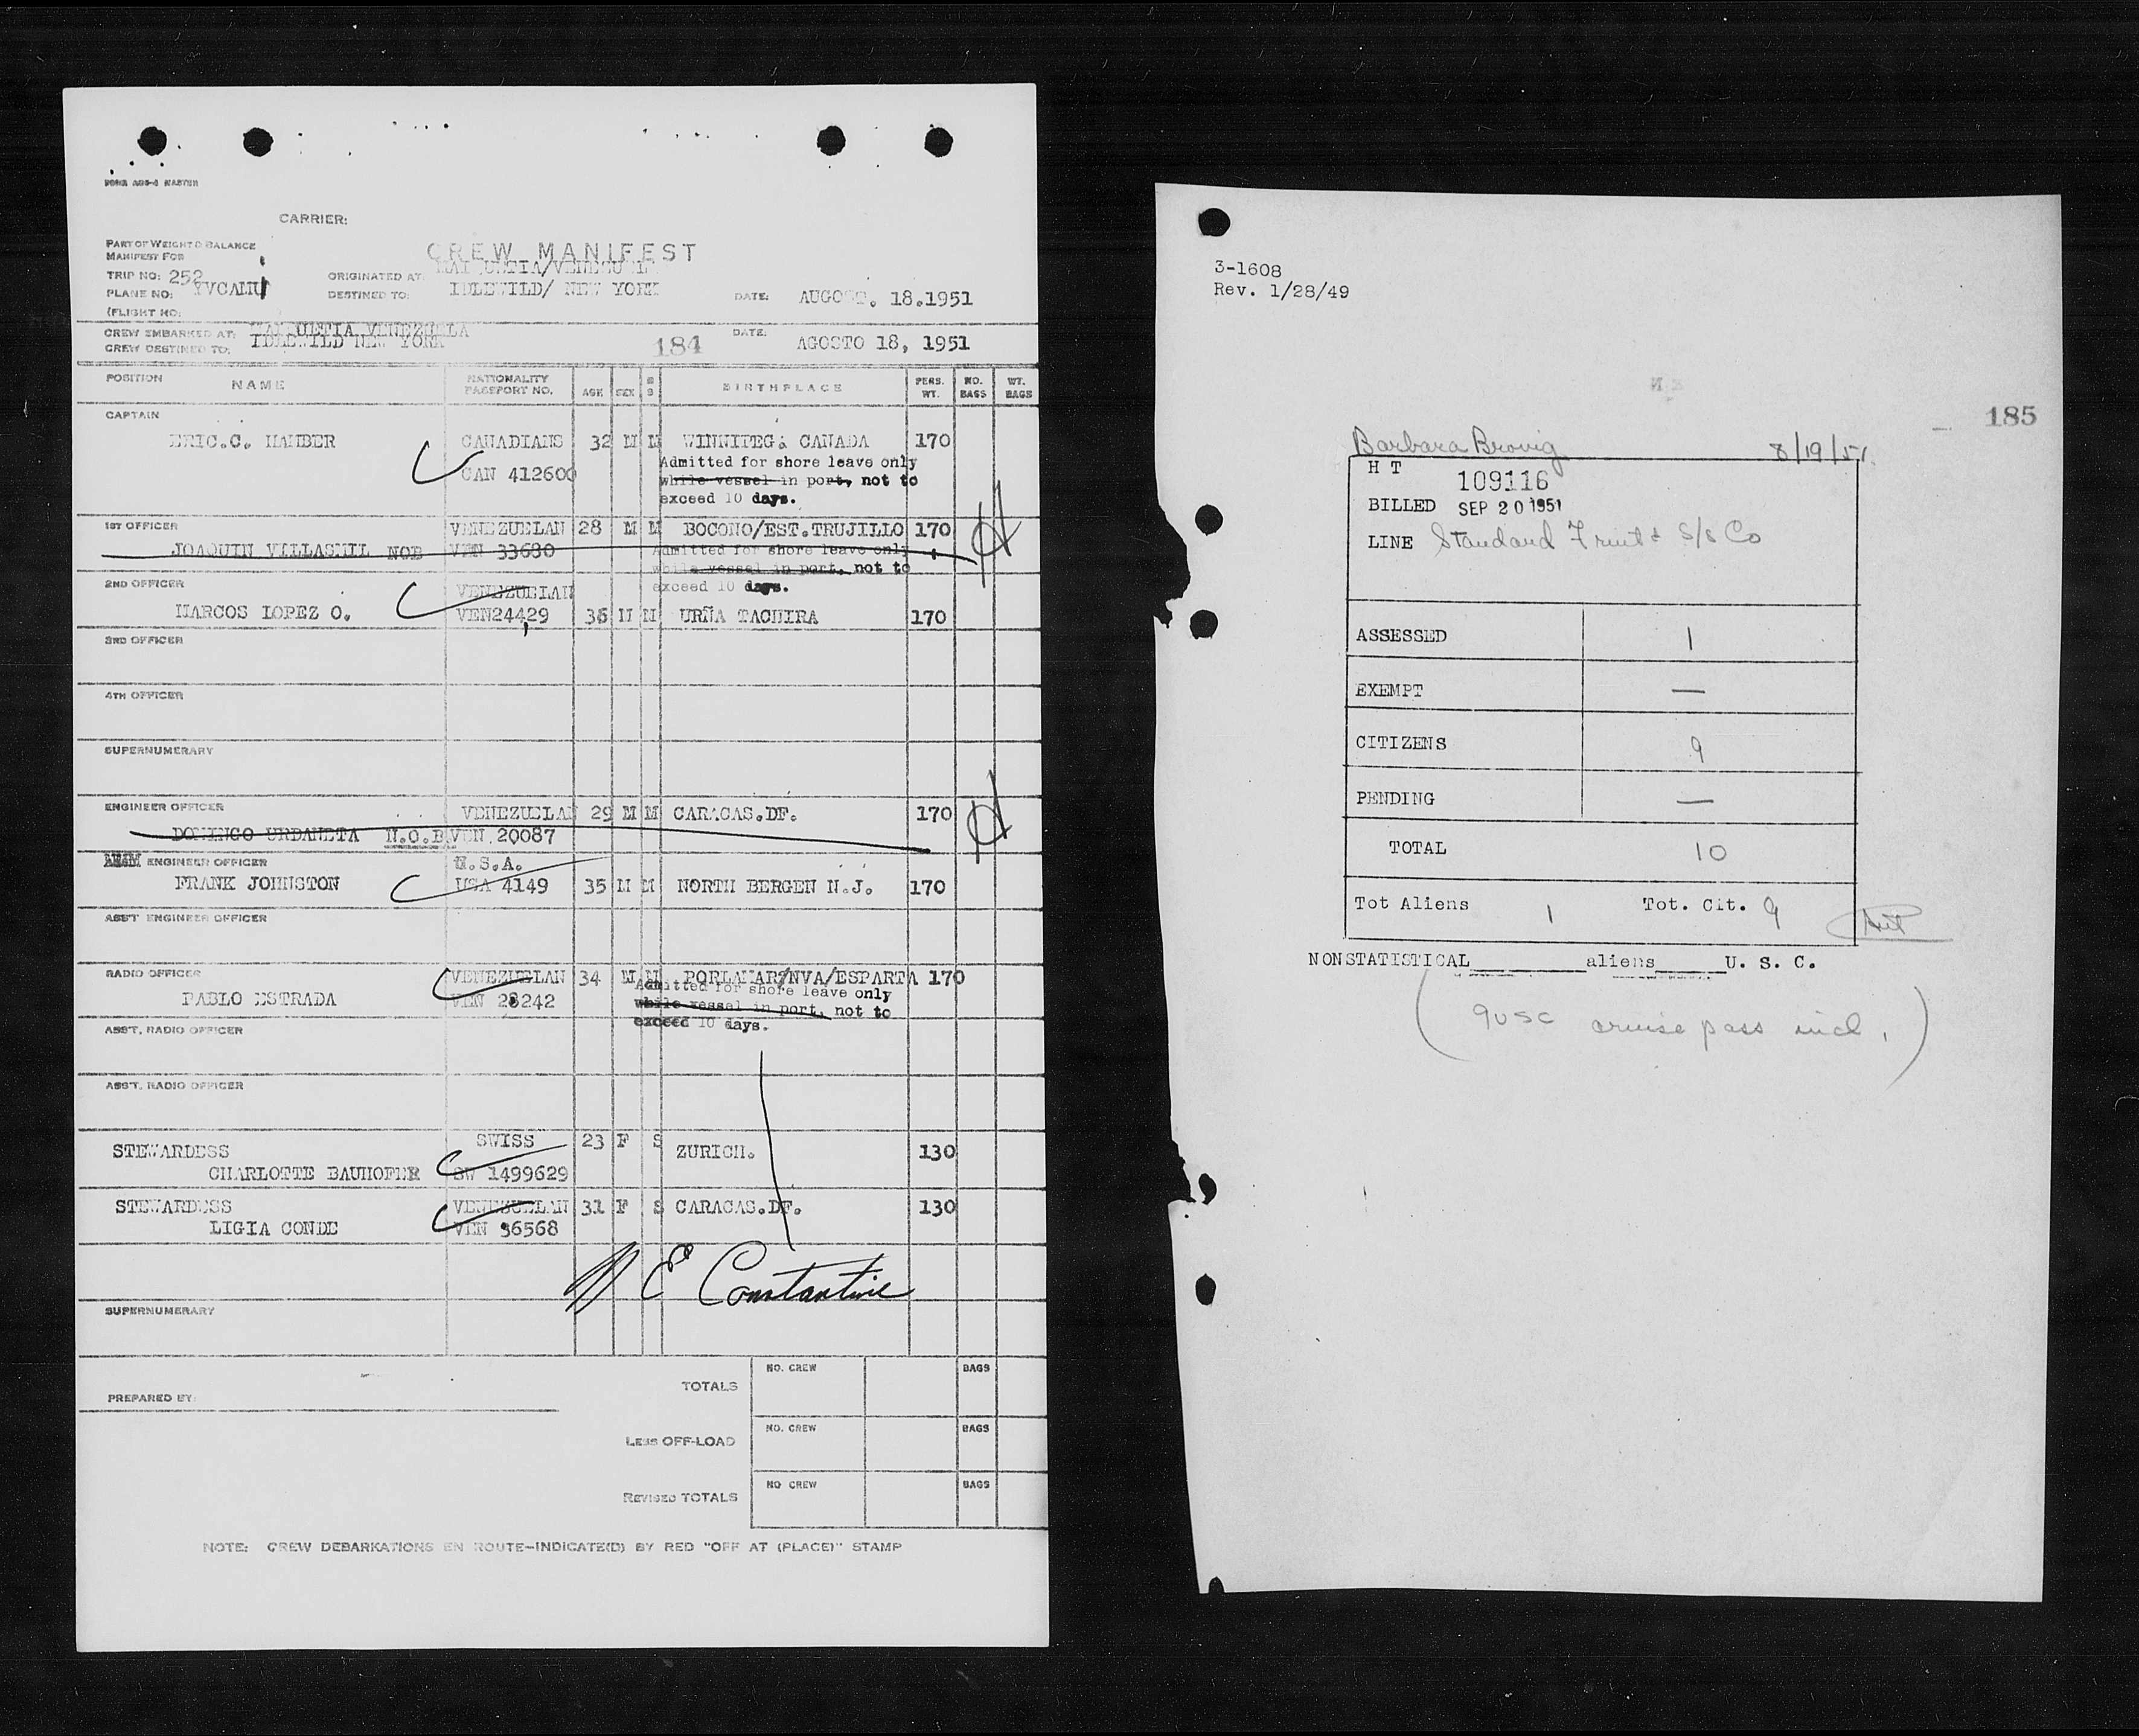 FORM AGS-4 MASTER
CARRIER:
PART OF WEIGHT & BALANCE
MANIFEST FOR
CREW MANIFEST
TRIP NO: 252
ORIGINATED AT: MAIQUETIA/VENEZUELA
PLANE NO: YVCAMU
DESTINED TO: IDLEWILD/ NEW YORK
DATE: AUGOST. 18.1951
(FLIGHT NO:
CREW EMBARKED AT: MAIQUETIA VENEZUELA
DATE:
CREW DESTINED TO: IDLEWILD NEW YORK
184
AGOSTO 18, 1951
POSITION NAME NATIONALITY PASSPORT NO. AGE SEX M S BIRTHPLACE PERS. WT. NO. BAGS WT. BAGS
CAPTAIN
ERIC.C. HAMBER CANADIANS 32 M M WINNIPEG. CANADA 170
CAN 412600
Admitted for shore leave only
while vessel in port, not to
exceed 10 days.
1ST OFFICER VENEZUELAN 28 M M BOCONO/EST.TRUJILLO 170
JOAQUIN VILLASMIL NOB VEN 33680
Admitted for shore leave only
while vessel in port, not to
exceed 10 days.
2ND OFFICER VENEZUELAN
MARCOS LOPEZ O. VEN24429 36 M M URÑA TACHIRA 170
3RD OFFICER
4TH OFFICER
SUPERNUMERARY
ENGINEER OFFICER VENEZUELAN 29 M M CARACAS.DF. 170
DOMINGO URDANETA N.O.B VEN 20087
ENGINEER OFFICER U.S.A.
FRANK JOHNSTON USA 4149 35 M M NORTH BERGEN N.J. 170
ASS'T ENGINEER OFFICER
RADIO OFFICER VENEZUELAN 34 M M PORLAMAR/NVA/ESPARTA 170
PABLO ESTRADA VEN 28242
Admitted for shore leave only
while vessel in port, not to
exceed 10 days.
ASS'T. RADIO OFFICER
ASS'T. RADIO OFFICER
STEWARDESS SWISS 23 F S ZURICH. 130
CHARLOTTE BAUHOFER SW 1499629
STEWARDESS VENEZUELAN 31 F S CARACAS.DF. 130
LIGIA CONDE VEN 36568
E Constantine
SUPERNUMERARY
TOTALS NO. CREW BAGS
PREPARED BY:
LESS OFF-LOAD NO. CREW BAGS
REVISED TOTALS NO CREW BAGS
NOTE: CREW DEBARKATIONS EN ROUTE-INDICATE(D) BY RED "OFF AT (PLACE)" STAMP
3-1608
Rev. 1/28/49
185
Barbara Brovig 8/19/51.
H T 109116
BILLED SEP 20 1951
LINE Standard Fruit & S/S Co
ASSESSED 1
EXEMPT —
CITIZENS 9
PENDING —
TOTAL 10
Tot Aliens 1 Tot. Cit. 9
NONSTATISTICAL aliens U. S. C.
(9 USC cruise pass incl.)